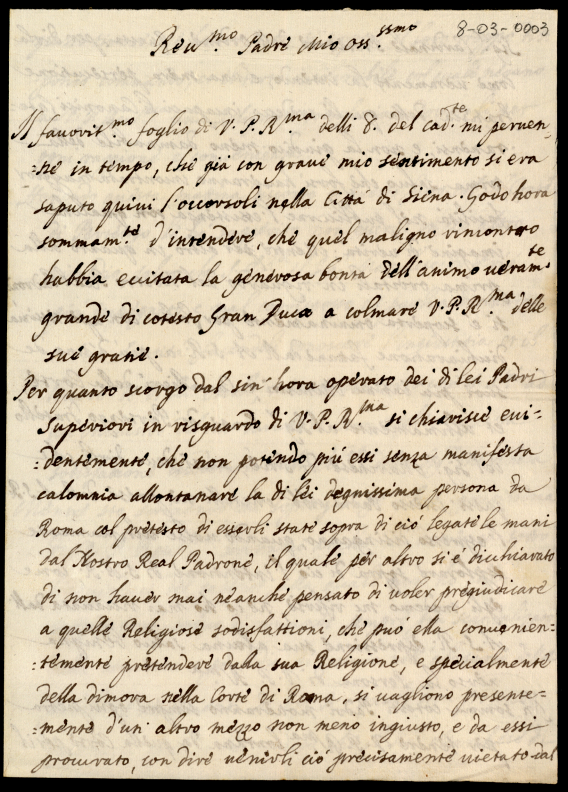 8-03-0003
Reu.mo Padre Mio Oss.ssmo
Il favorit.mo foglio di V. P. R.ma delli 8. del cad.te mi perven-
:ne in tempo, che già con grave mio sentimento si era
saputo quivi l'occorsoli nella Città di Siena. Godo hora
sommam.te d'intendere, che quel maligno rincontro
habbia eccitata la generosa bontà dell'animo veram.te
grande di cotesto Gran Duca a colmare V. P. R.ma delle
sue gratie.
Per quanto scorgo dal sin' hora operato dei di lei Padri
Superiori in risguardo di V. P. R.ma si chiarisce evi-
:dentemente, che non potendo più essi senza manifesta
calomnia allontanare la di lei degnissima persona da
Roma col pretesto di esserli state sopra di ciò legate le mani
dal Nostro Real Padrone, il quale per altro si è dichiarato
di non haver mai neanche pensato di voler pregiudicare
a quelle Religiose sodisfattioni, che può ella convenien-
:temente pretendere dalla sua Religione, e specialmente
della dimora nella Corte di Roma, si vagliono presente-
:mente d'un altro mezzo non meno ingiusto, e da essi
procurato, con dire venirli ciò precisamente vietato dal